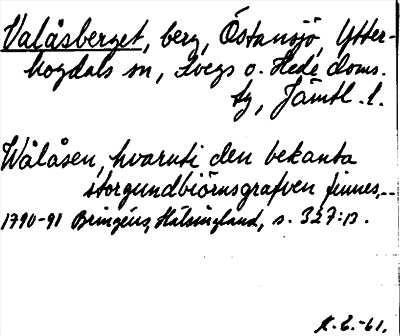 Valåsberget, berg, Östansjö, Ytter-
hogdals sn, Svegs o. Hede doms.
tg, Jämtl. l.
Wålåsen, hvaruti den bekanta
storgundbiörnsgrafven finnes,--
1790-91 Bringéus, Hälsingland, s. 327:B.
K.E.-61.